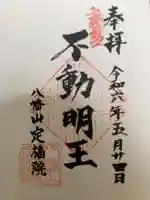 奉拝
令和六年五月廿一日
不動明王
八幡山定福院